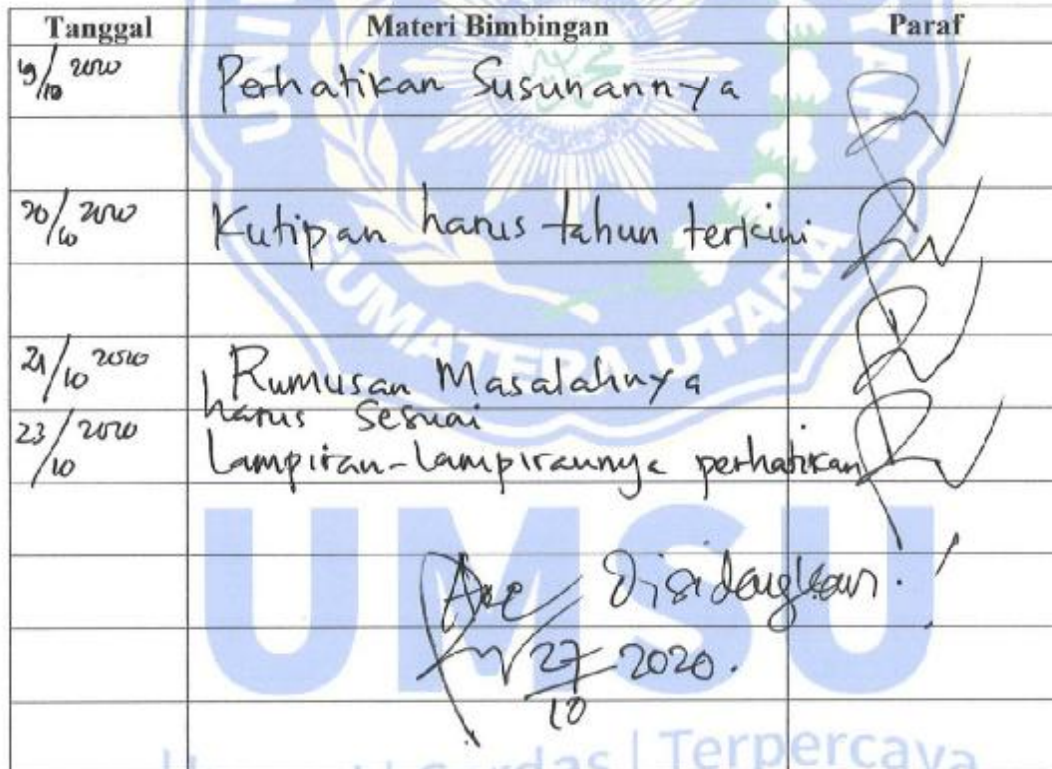 Tanggal Materi Bimbingan Paraf
19/10 2020 Perhatikan Susunannya
20/10 2020 Kutipan harus tahun terkini
21/10 2020 Rumusan Masalahnya
harus sesuai
23/10 2020 Lampiran-lampirannya perhatikan
Acc Disidangkan.!
27/10 2020.
UMSU
SUMATERA UTARA
Cerdas | Terpercaya